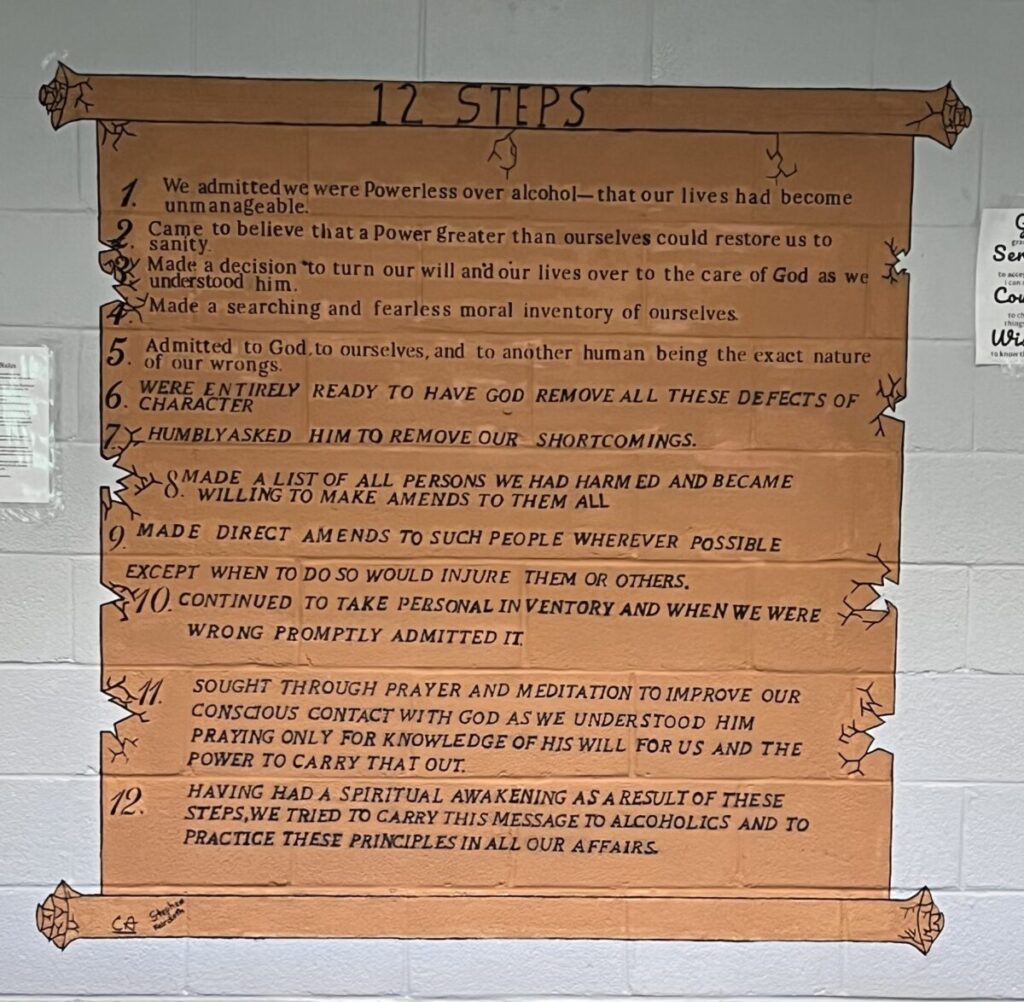 12 STEPS
1. We admitted we were Powerless over alcohol— that our lives had become
unmanageable.
2. Came to believe that a Power Greater than ourselves could restore us to
sanity.
3. Made a decision to turn our will and our lives over to the care of God as we
understood him.
4. Made a searching and fearless moral inventory of ourselves.
5. Admitted to God, to ourselves, and to another human being the exact nature
of our wrongs.
6. WERE ENTIRELY READY TO HAVE GOD REMOVE ALL THESE DEFECTS OF
CHARACTER
7. HUMBLY ASKED HIM TO REMOVE OUR SHORTCOMINGS.
8. MADE A LIST OF ALL PERSONS WE HAD HARMED AND BECAME
WILLING TO MAKE AMENDS TO THEM ALL
9. MADE DIRECT AMENDS TO SUCH PEOPLE WHEREVER POSSIBLE
EXCEPT WHEN TO DO SO WOULD INJURE THEM OR OTHERS.
10. CONTINUED TO TAKE PERSONAL INVENTORY AND WHEN WE WERE
WRONG PROMPTLY ADMITTED IT.
11. SOUGHT THROUGH PRAYER AND MEDITATION TO IMPROVE OUR
CONSCIOUS CONTACT WITH GOD AS WE UNDERSTOOD HIM
PRAYING ONLY FOR KNOWLEDGE OF HIS WILL FOR US AND THE
POWER TO CARRY THAT OUT.
12. HAVING HAD A SPIRITUAL AWAKENING AS A RESULT OF THESE
STEPS, WE TRIED TO CARRY THIS MESSAGE TO ALCOHOLICS AND TO
PRACTICE THESE PRINCIPLES IN ALL OUR AFFAIRS.
CA
Stephen